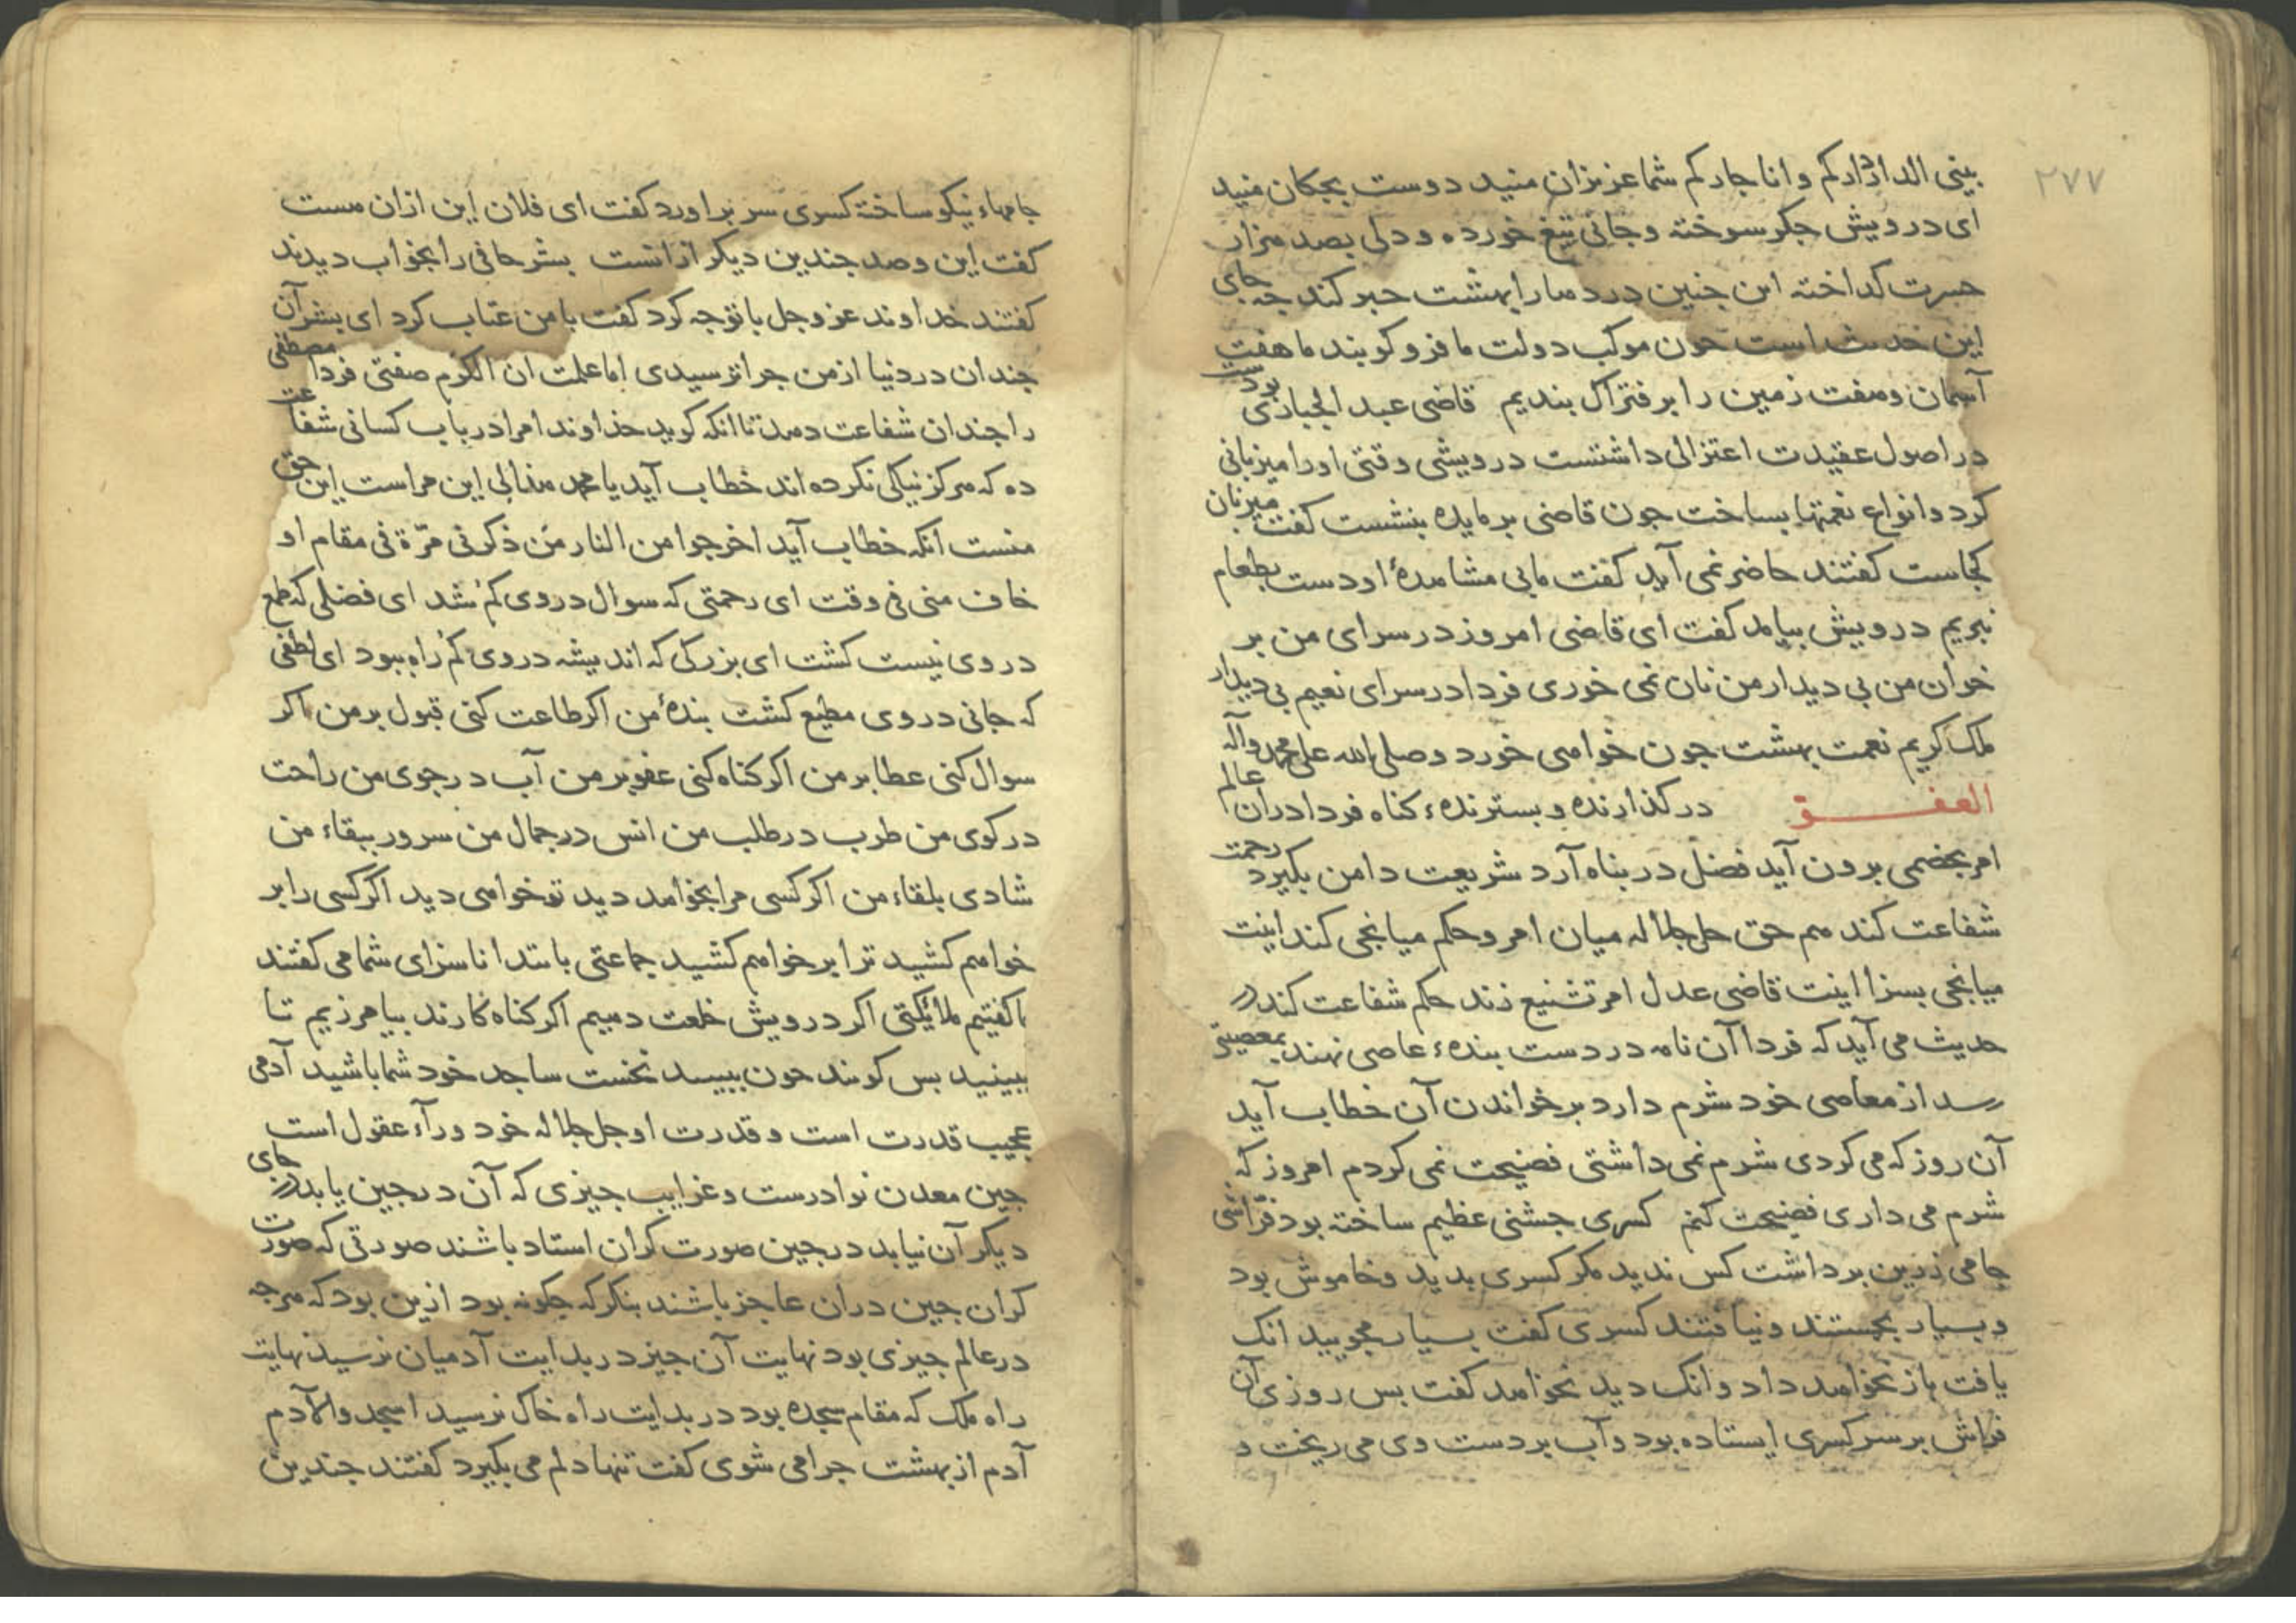 ۲۷۷
بینی الدار دارکم و انا جارکم شما عزیزان منید دوست بچکان منید
ای درویش جکر سوخته و جانی تیغ خورده و دلی بصد هزار
حسرت کداخته این جنین درد مارا بهشت جبر کند جه جای
این حدیث است جون موکب دولت ما فرو کوبند ما هفت
آسمان و هفت زمین را بر فتراک بندیم قاضی عبد الجبار بود
در اصول عقیدت اعتزالی داشتست درویشی وقتی اورا میزبانی
کرد و انواع نعمتها بساخت جون قاضی بر مایده بنشست کفت میزبان
کجاست کفتند حاضر نمی آید کفت ما بی مشاهدهٔ او دست بطعام
نبریم درویش بیامد کفت ای قاضی امروز در سرای من بر
خوان من بی دیدار من نان نمی خوری فردا در سرای نعیم بی دیدار
ملک کریم نعمت بهشت جون خواهی خورد و صلی الله علی محمد وآله
العفو در کذارنده و بسترنده کناه فردا در ان عالم
امر بخصمی برون آید فضل در بناه آرد شریعت دامن بکیرد رحمت
شفاعت کند هم حق جل جلاله میان امر و حکم میانجی کند اینت
میانجی بسزا اینت قاضی عدل امر تشنیع زند حکم شفاعت کند در
حدیث می آید که فردا آن نامه در دست بنده عاصی نهند بمعصیتی
رسد از معاصی خود شرم دارد بر خواندن آن خطاب آید
آن روز که می کردی شرم نمی داشتی فضیحت نمی کردم امروز که
شرم می داری فضیحت کنم کسری جشنی عظیم ساخته بود فرّاشی
جامی زرین برداشت کس ندید مکر کسری بدید و خاموش بود
و بسیار بجستند و نیافتند کسری کفت بسیار مجویید انک
یافت باز نخواهد داد و انک دید نخواهد کفت بس روزی آن
فراش بر سر کسری ایستاده بود و آب بر دست وی می ریخت و
جامهاء نیکو ساخته کسری سر براورد کفت ای فلان این ازان هست
کفت این و صد جندین دیکر ازانست بشر حافی را بخواب دیدند
کفتند خداوند عز و جل با تو جه کرد کفت با من عتاب کرد ای بشر آن
جندان در دنیا از من جرا ترسیدی اما علمت ان الکرم صفتی فردا مصطفی
را جندان شفاعت دهد تا انکه کوید خداوند امرا در باب کسانی شفاعت
ده که هرکز نیکی نکرده اند خطاب آید یا محمد هذا لی این مراست این حق
منست انکه خطاب آید اخرجوا من النار من ذکرنی مرّة فی مقام او
خافنی فی وقت ای رحمتی که سوال در وی کم شد ای فضلی که طمع
در وی نیست کشت ای بزرکی که اندیشه در وی کم راه ببود ای لطفی
که جانی در وی مطیع کشت بندهٔ من اکر طاعت کنی قبول بر من اکر
سوال کنی عطا بر من اکر کناه کنی عفو بر من آب در جوی من راحت
در کوی من طرب در طلب من انس در جمال من سرور ببقاء من
شادی بلقاء من اکر کسی مرا بخواهد دید تو خواهی دید اکر کسی را بر
خواهم کشید ترا بر خواهم کشید جماعتی بابتدا ناسزای شما می کفتند
ما کفتیم ملائکتی اکر درویش خلعت دهیم اکر کناه کارند بیامرزیم تا
ببینید بس کویند جون ببینید نخست ساجد خود شما باشید آدمی
عجیب قدرت است و قدرت او جل جلاله خود ورآء عقول است
جین معدن نوادرست و غرایب جیزی که آن در جین یابد در جای
دیکر آن نیابد در جین صورت کران استاد باشند صورتی که صورت
کران جین دران عاجز باشند بنکر که جکونه بود ازین بود که هر جه
در عالم جیزی بود نهایت آن جیز در بدایت آدمیان نرسید نهایت
راه ملک که مقام سجده بود در بدایت راه خاک نرسید اسجدوا لادم
آدم از بهشت جرا می شوی کفت تنها دلم می بکیرد کفتند جندین